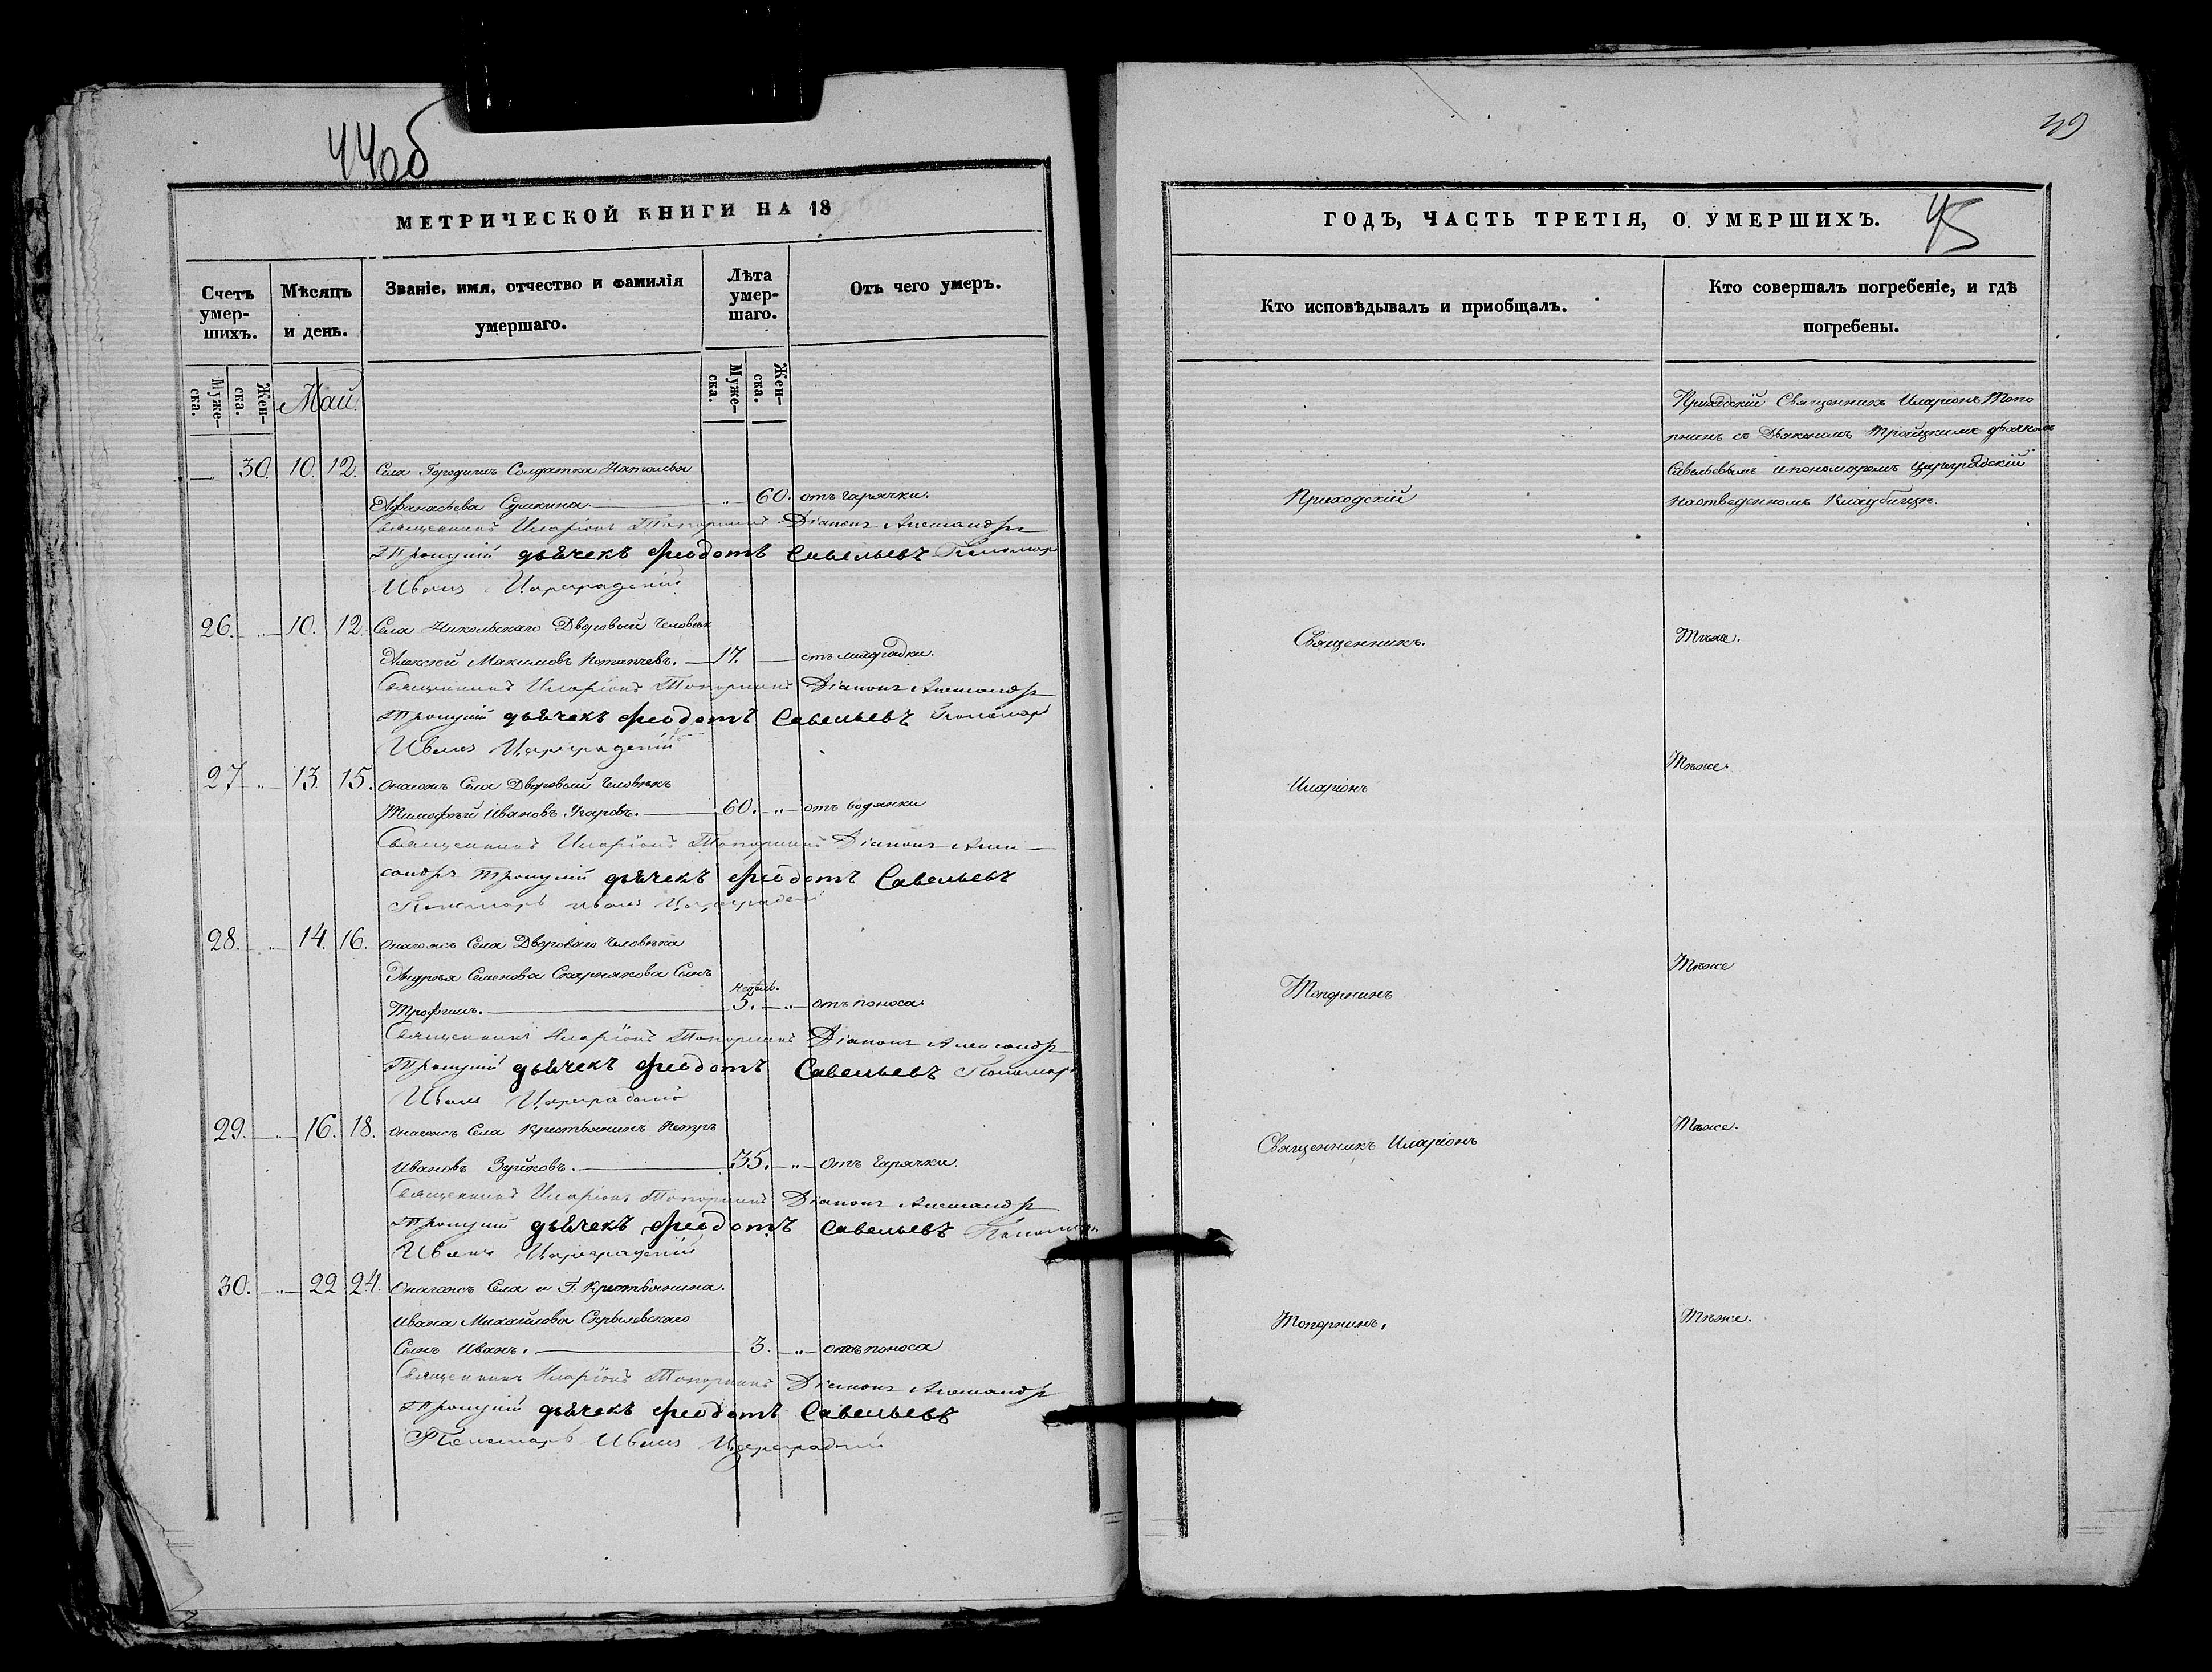 44об
МЕТРИЧЕСКОЙ КНИГИ НА 18
Счетъ умер-шихъ.
Мѣсяцъ и день.
Званіе, имя, отчество и фамилія умершаго.
Лѣта умер-шаго.
Отъ чего умеръ.
Муже-ска.
Жен-ска.
Май
Муже-ска.
Жен-ска.
30. 10. 12. Села Городищь Солдатка Наталья
Афанасьева Сушкина. 60. отъ гарячки.
Священникъ Иларіонъ Топорнинъ Діаконъ Александръ
Троицкій дьячекъ Феодотъ Савельевъ Пономарь
Иванъ Цареградскій
26. 10. 12. Села Никольскаго Дворовый Человѣкъ
Алексѣй Максимовъ Потапчевъ. 17. отъ лихорадки.
Священникъ Иларіонъ Топорнинъ Діаконъ Александръ
Троицкій дьячекъ Феодотъ Савельевъ Пономарь
Иванъ Цареградскій
27 13. 15. Онагожъ Села Дворовый Человѣкъ
Тимофѣй Ивановъ Угаровъ. 60. отъ водянки
Священникъ Иларіонъ Топорнинъ Діаконъ Алек-
сандръ Троицкій дьячекъ Феодотъ Савельевъ
Пономарь Иванъ Цареградскій
28. 14. 16. Онагожъ Села Двороваго Человѣка
Андрея Семенова Скарнякова Сынъ
Трофимъ. недѣль. 5. отъ поноса.
Священникъ Иларіонъ Топорнинъ Діаконъ Александръ
Троицкій дьячекъ Феодотъ Савельевъ Пономарь
Иванъ Цареградскій
29. 16. 18. Онагожъ Села Крестьянинъ Петръ
Ивановъ Зуйковъ. 35. Отъ гарячки.
Священникъ Иларіонъ Топорнинъ Діаконъ Александръ
Троицкій дьячекъ Феодотъ Савельевъ Пономарь
Иванъ Цареградскій
30. 22. 24. Онагожъ Села и Г. Крестьянина
Ивана Михайлова
Сынъ Иванъ. 3. отъ поноса
Священникъ Иларіонъ Топорнинъ Діаконъ Александръ
Троицкій дьячекъ Феодотъ Савельевъ
Пономарь Иванъ Цареградскій
45
ГОДЪ, ЧАСТЬ ТРЕТІЯ, О УМЕРШИХЪ.
Кто исповѣдывалъ и пріобщалъ.
Кто совершалъ погребеніе, и гдѣ погребены.
Приходскій Священникъ Иларіонъ Топо
рнинъ съ Дьякономъ Троицкимъ дьячкомъ
Савельевымъ и пономаремъ Цареградскій
на отведенномъ Кладбищѣ.
Приходскій
Священникъ.
Тѣже.
Иларіонъ
Тѣже.
Топорнинъ
Тѣже
Священникъ Иларіонъ
Тѣже.
Топорнинъ.
Тѣже.